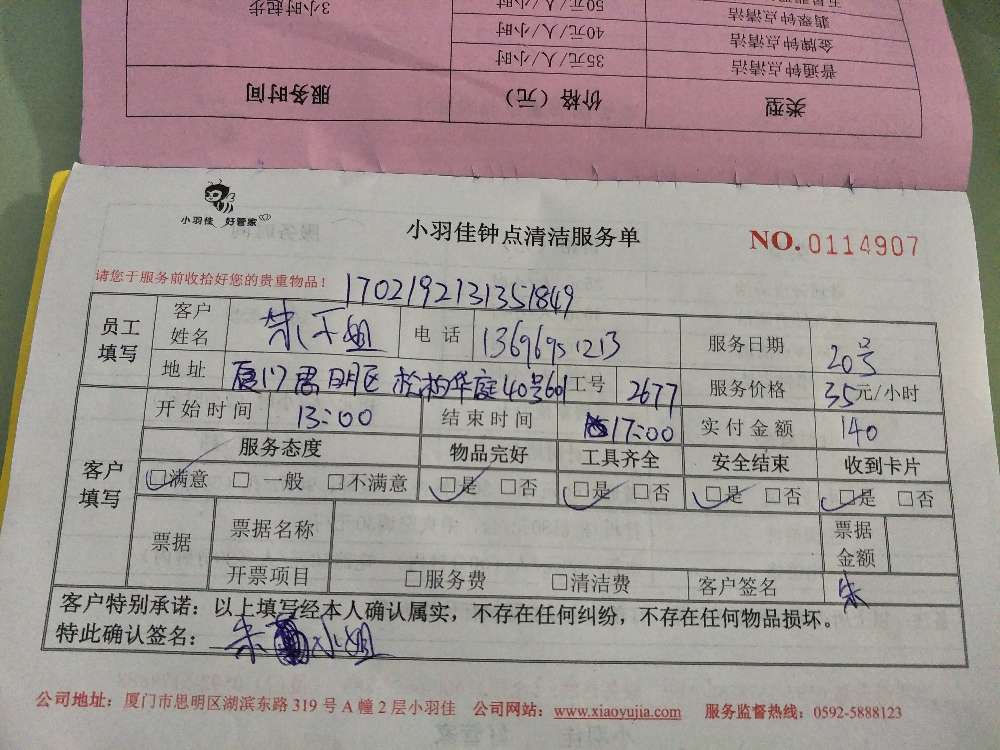 3小时起步
50元/人/小时
翡翠钟点清洁
40元/人/小时
金牌钟点清洁
35元/人/小时
普通钟点清洁
服务时间
价格（元）
类型
小羽佳 好管家
小羽佳钟点清洁服务单
NO.0114907
请您于服务前收拾好您的贵重物品！
1702192131351849
员工填写
客户姓名 朱小姐 电话 13696951213 服务日期 20号
地址 厦门思明区松柏华庭40号601 工号 2677 服务价格 35元/小时
客户填写
开始时间 13:00 结束时间 17:00 实付金额 140
服务态度 物品完好 工具齐全 安全结束 收到卡片
□满意 □一般 □不满意 □是 □否 □是 □否 □是 □否 □是 □否
票据 票据名称 票据金额
开票项目 □服务费 □清洁费 客户签名 朱
客户特别承诺：以上填写经本人确认属实，不存在任何纠纷，不存在任何物品损坏。
特此确认签名：朱小姐
公司地址：厦门市思明区湖滨东路319号A幢2层小羽佳 公司网站：www.xiaoyujia.com 服务监督热线：0592-5888123